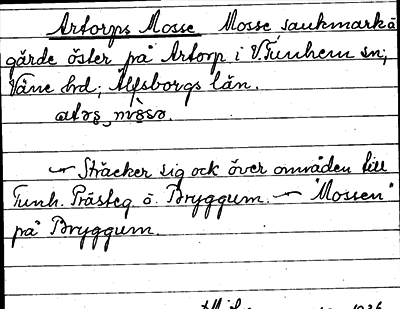 Artorps Mosse Mosse sankmark å
gärde öster på Artorp i V. Tunhem sn;
Väne hd; Älfsborgs län.
Sträcker sig ock över områden till
Tunh. Prästeg o. Bryggum. — "Mossen"
på Bryggum.